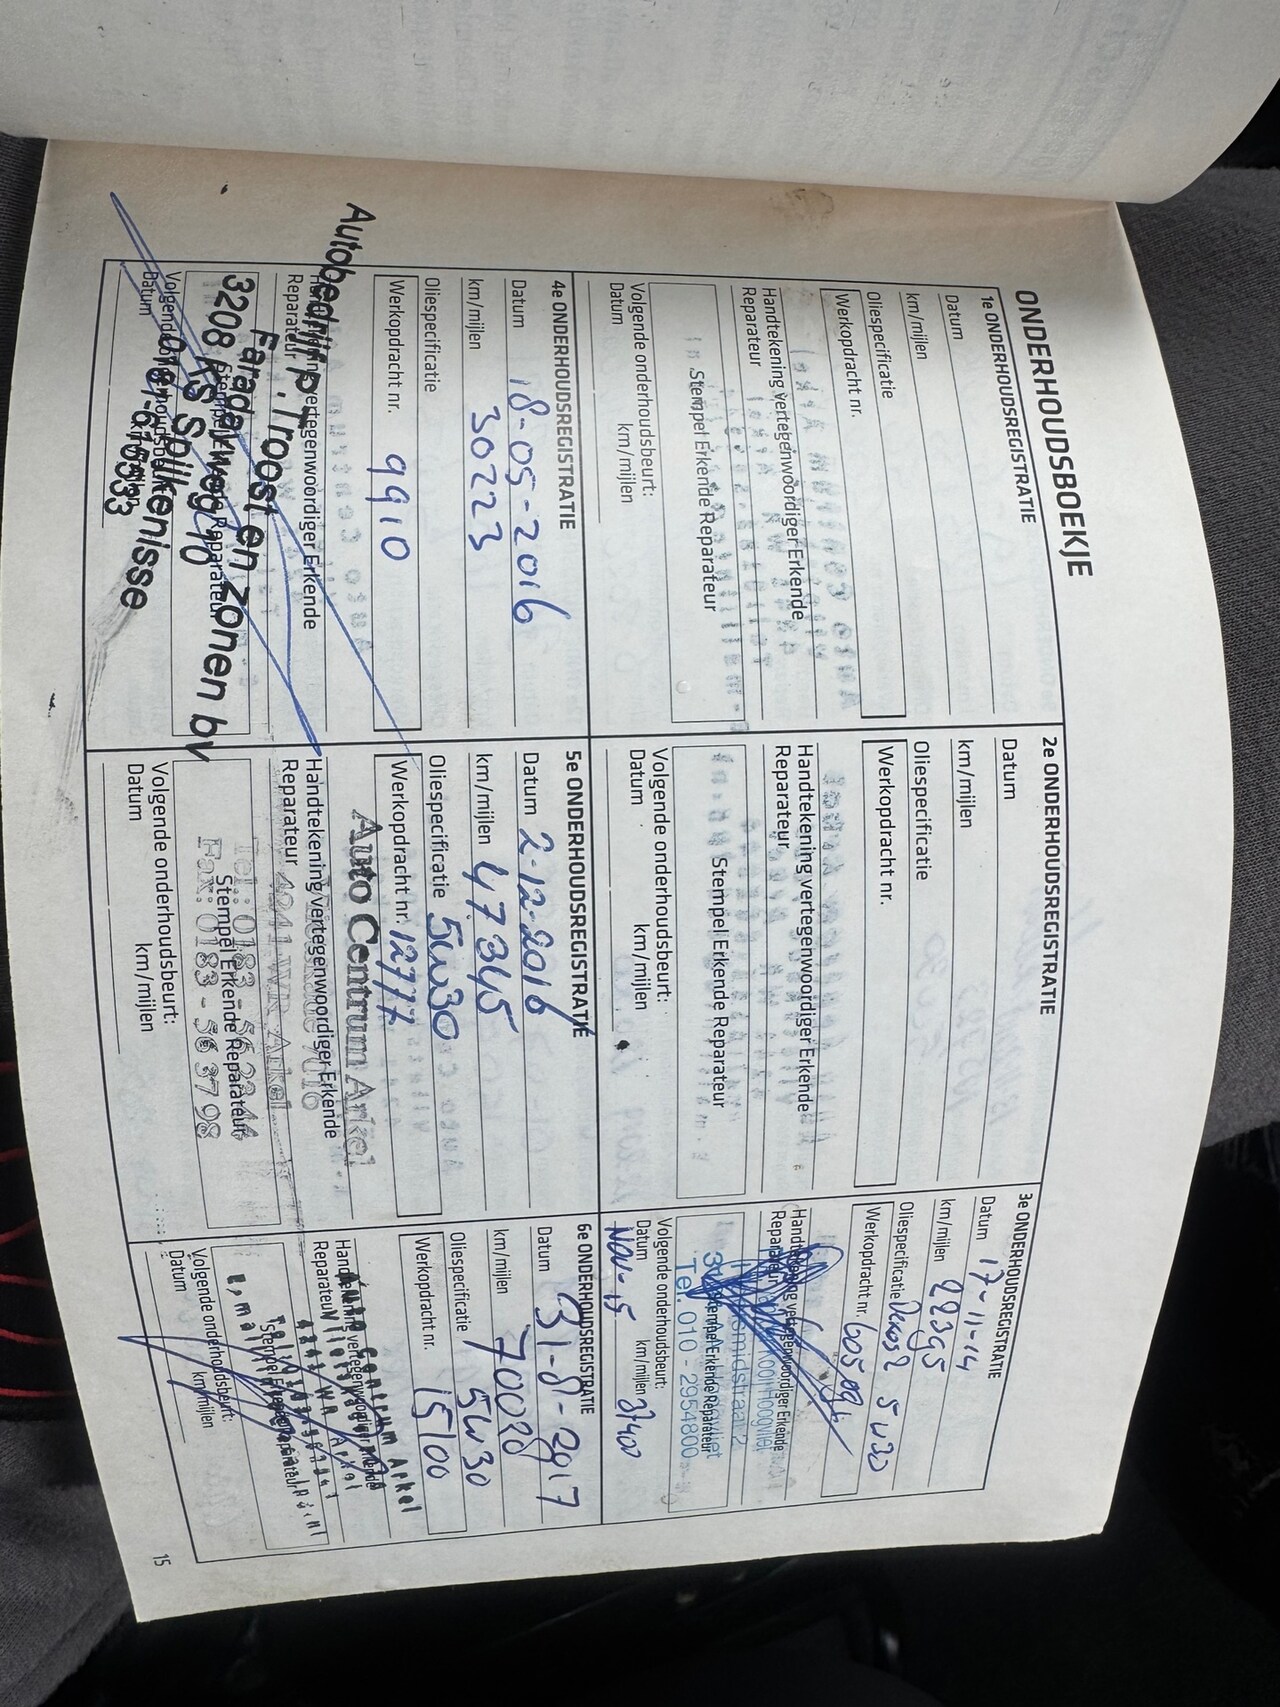 ONDERHOUDSBOEKJE
1e ONDERHOUDSREGISTRATIE
Datum
km/mijlen
Oliespecificatie
Werkopdracht nr.
Handtekening vertegenwoordiger Erkende
Reparateur
Stempel Erkende Reparateur
Volgende onderhoudsbeurt:
Datum km/mijlen
2e ONDERHOUDSREGISTRATIE
Datum
km/mijlen
Oliespecificatie
Werkopdracht nr.
Handtekening vertegenwoordiger Erkende
Reparateur
Stempel Erkende Reparateur
Volgende onderhoudsbeurt:
Datum km/mijlen
3e ONDERHOUDSREGISTRATIE
Datum 17-11-14
km/mijlen 22395
Oliespecificatie 5w30
Werkopdracht nr.
Handtekening vertegenwoordiger Erkende
Reparateur
Stempel Erkende Reparateur
Tel. 010 - 2954800
Volgende onderhoudsbeurt:
Datum km/mijlen
Nov-15 37400
4e ONDERHOUDSREGISTRATIE
Datum 18-05-2016
km/mijlen 30223
Oliespecificatie
Werkopdracht nr. 9910
Handtekening vertegenwoordiger Erkende
Reparateur
Autobedrijf P. Troost en zonen bv
Faradayweg 10
3208 KS Spijkenisse
Stempel Erkende Reparateur
Volgende onderhoudsbeurt:
Datum km/mijlen
5e ONDERHOUDSREGISTRATIE
Datum 2-12-2016
km/mijlen 47345
Oliespecificatie 5w30
Werkopdracht nr. 12777
Auto Centrum Arkel
Handtekening vertegenwoordiger Erkende
Reparateur
4241 WR Arkel
Tel.: 0183 - 56 23 44
Stempel Erkende Reparateur
Fax: 0183 - 56 37 98
Volgende onderhoudsbeurt:
Datum km/mijlen
6e ONDERHOUDSREGISTRATIE
Datum 31-8-2017
km/mijlen 70090
Oliespecificatie 5w30
Werkopdracht nr. 15100
Auto Centrum Arkel
Handtekening vertegenwoordiger Erkende
Reparateur
4241 WR Arkel
Stempel Erkende Reparateur
Volgende onderhoudsbeurt:
Datum km/mijlen
15